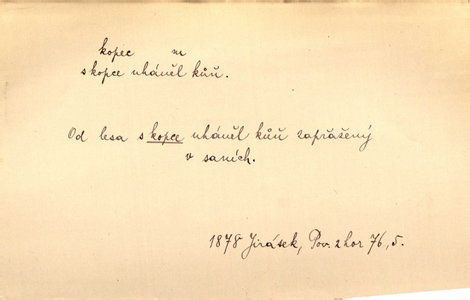 kopec m
s kopce uháněl kůň.
Od lesa s kopce uháněl kůň zapřažený
v saních.
1878 Jirásek, Pov. z hor 76, 5.